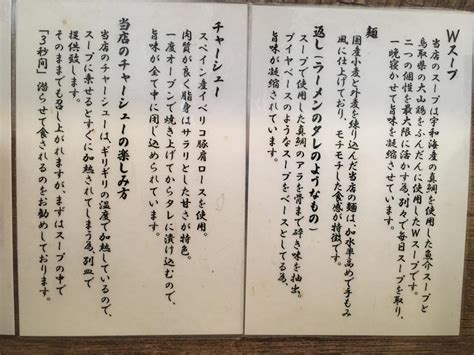 Wスープ
当店のスープは宇和海産の真鯛を使用した魚介スープと
鳥取県の大山鶏をふんだんに使用したWスープです。
二つの個性を最大限に活かす為、別々で毎日スープを取り、
一晩寝かせて旨味を凝縮させています。
麺
国産小麦と外麦を練り込んだ当店の麺は、加水率高めで手もみ
風に仕上げており、モチモチした食感が特徴です。
返し（ラーメンのタレのようなもの）
スープで使用した真鯛のアラを骨まで砕き味を抽出。
ブイヤベースのようなスープをベースとしてる為、
旨味が凝縮されています。
チャーシュー
スペイン産イベリコ豚肩ロースを使用。
肉質が良く脂身はサラリとした甘さが特色。
一度オーブンで焼き上げてからタレに漬け込むので、
旨味が全て中に閉じ込められています。
当店のチャーシューの楽しみ方
当店のチャーシューは、ギリギリの温度で加熱しているので、
スープに乗せるとすぐに加熱されてしまう為、別皿で
提供致します。
そのままでも召し上がれますが、まずはスープの中で
「3秒間」潜らせて食されるのをお勧めしております。